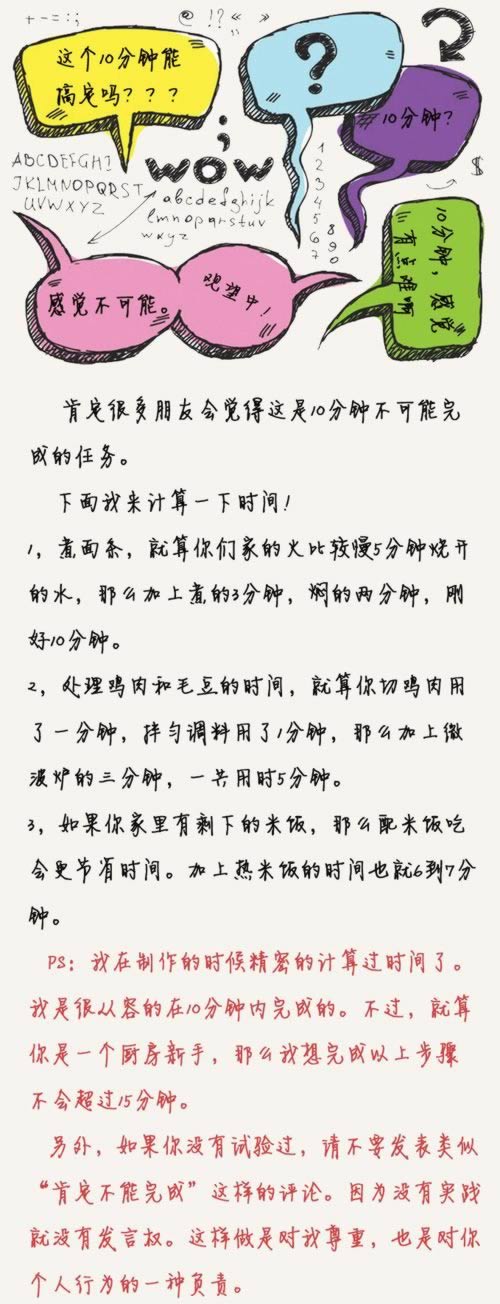 +-=:;
@ !? « »
这个10分钟能
搞定吗？？？
?
10分钟？
;
wow
$
ABCDEFGHI
JKLMNOPQRST
UVWXYZ
abcdefghijk
lmnopqrstuv
wxyz
1
2
3
4
5
6
7
8
9
0
10分钟，感觉
有点难啊
感觉不可能。
观望中！
肯定很多朋友会觉得这是10分钟不可能完
成的任务。
下面我来计算一下时间！
1，煮面条，就算你们家的火比较慢5分钟烧开
的水，那么加上煮的3分钟，焖的两分钟，刚
好10分钟。
2，处理鸡肉和毛豆的时间，就算你切鸡肉用
了一分钟，拌匀调料用了1分钟，那么加上微
波炉的三分钟，一共用时5分钟。
3，如果你家里有剩下的米饭，那么配米饭吃
会更节省时间。加上热米饭的时间也就6到7分
钟。
PS：我在制作的时候精密的计算过时间了。
我是很从容的在10分钟内完成的。不过，就算
你是一个厨房新手，那么我想完成以上步骤
不会超过15分钟。
另外，如果你没有试验过，请不要发表类似
“肯定不能完成”这样的评论。因为没有实践
就没有发言权。这样做是对我尊重，也是对你
个人行为的一种负责。